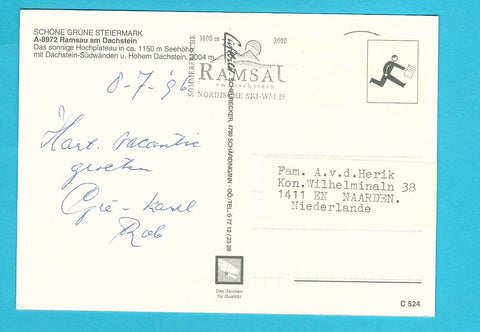 SCHÖNE GRÜNE STEIERMARK
A-8972 Ramsau am Dachstein
Das sonnige Hochplateau in ca. 1150 m Seehöhe
mit Dachstein-Südwänden u. Hohem Dachstein, 3004 m
8-7-'96
Hart. vacantie
groeten
Gré - Karel
Rob
SOMMERFRISCHE
1000 m - 3000
RAMSAU
am Dachstein
NORDISCHE SKI-WM 19
SCHÄRDING/INN - OÖ-TEL. 0 77 12 / 23 29
Das Zeichen
für Qualität
Fam. A.v.d.Herik
Kon.Wilhelminaln 38
1411 EN NAARDEN.
Niederlande
C 524